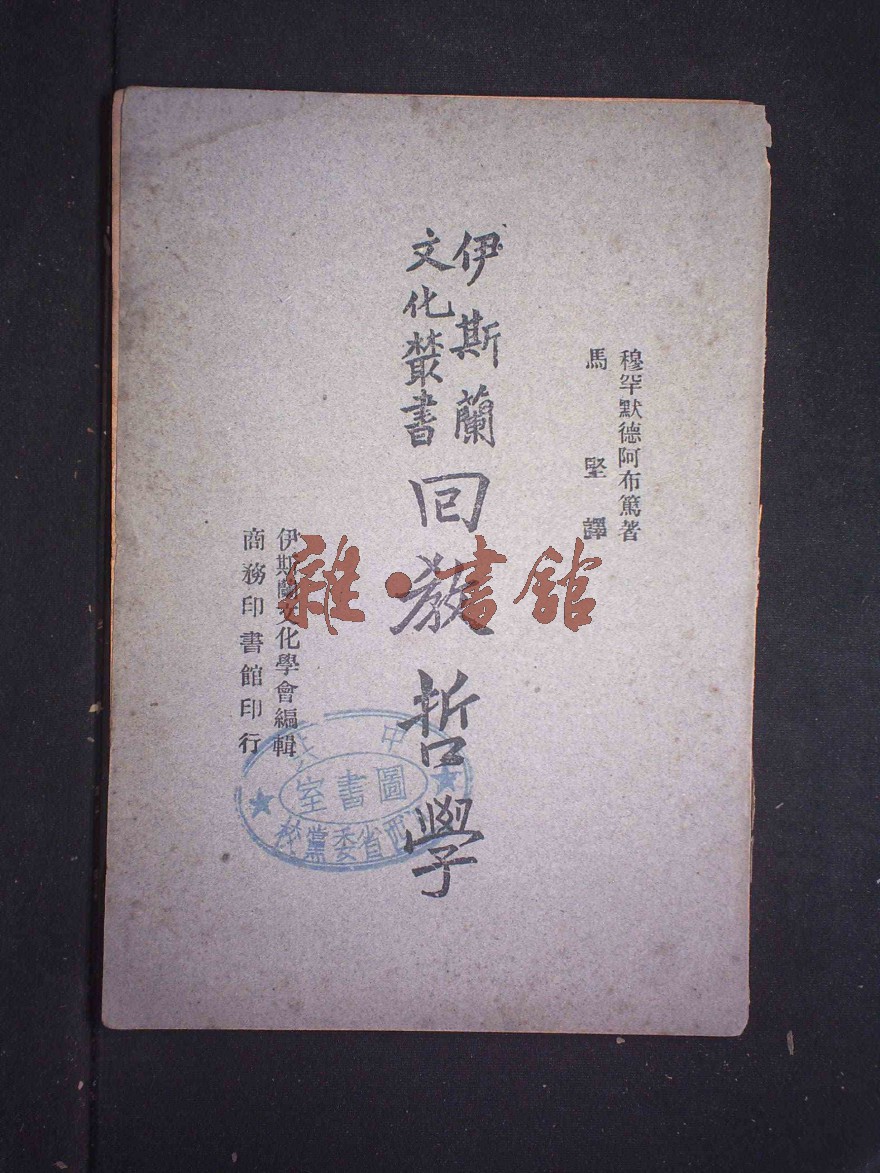 穆罕默德阿布篤著
馬堅譯
伊斯蘭
文化叢書
回教哲學
伊斯蘭文化學會編輯
商務印書館印行
雜·書館
中
圖書室
省委黨校